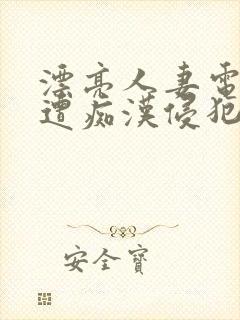 漂亮人妻電
遭痴漢侵犯
安全寶